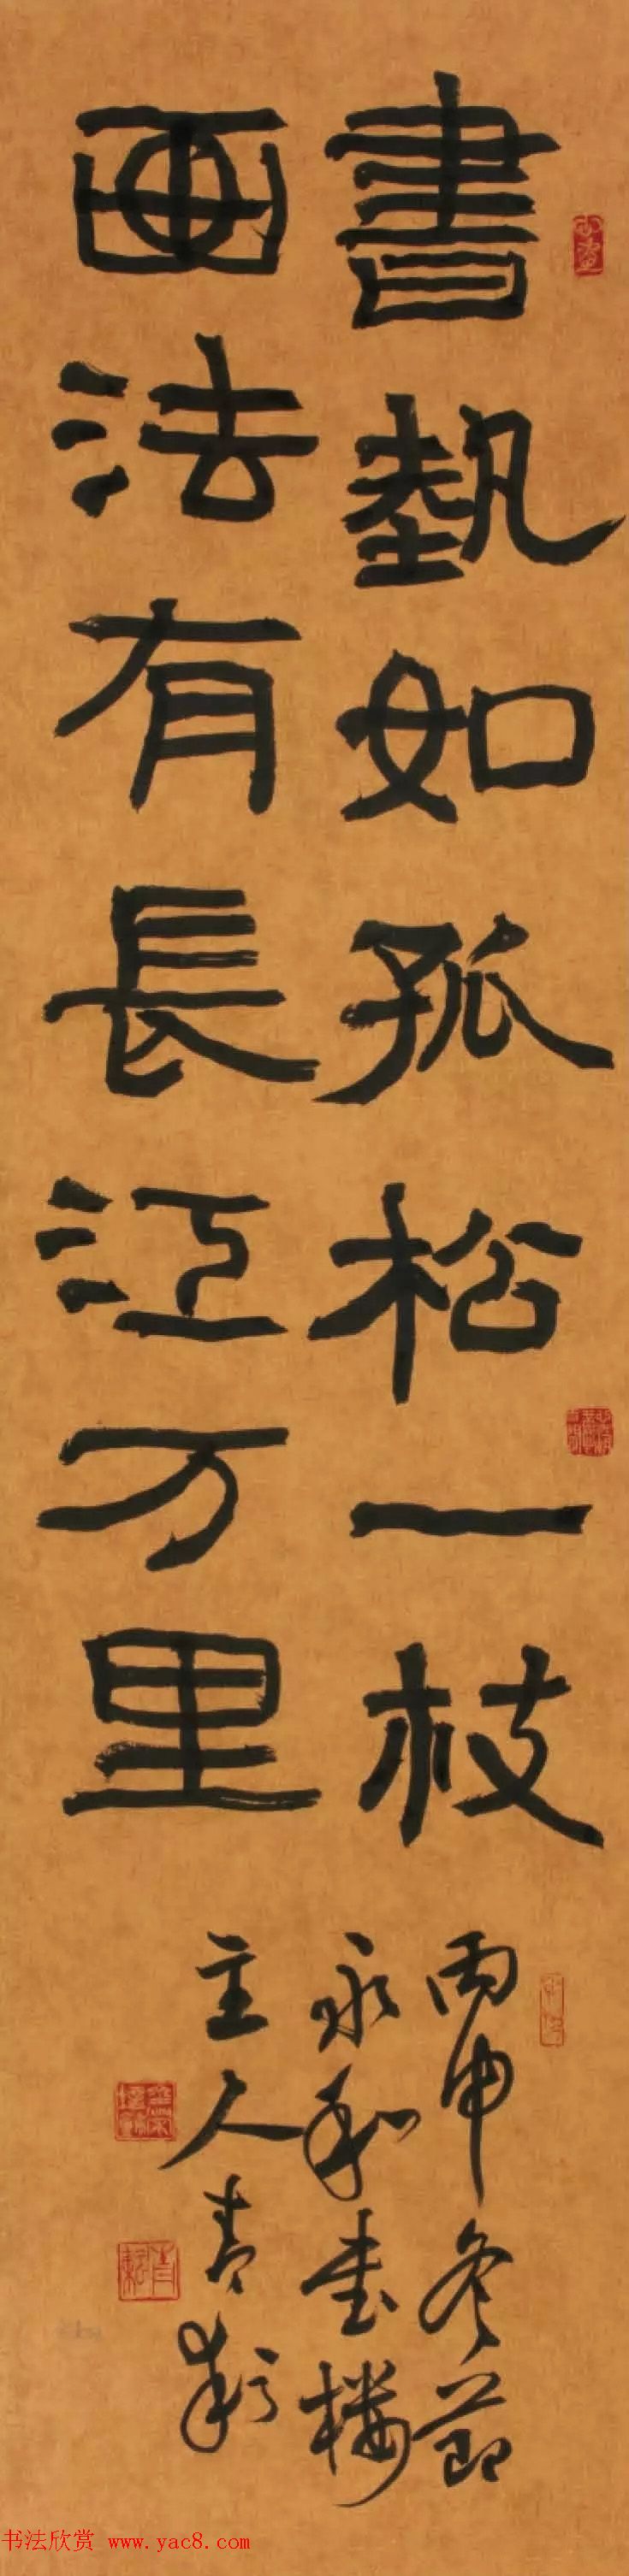 書埶如孤松一枝
画法有長江万里
丙申冬節
永和書樓
主人青
书法欣赏 www.yac8.com